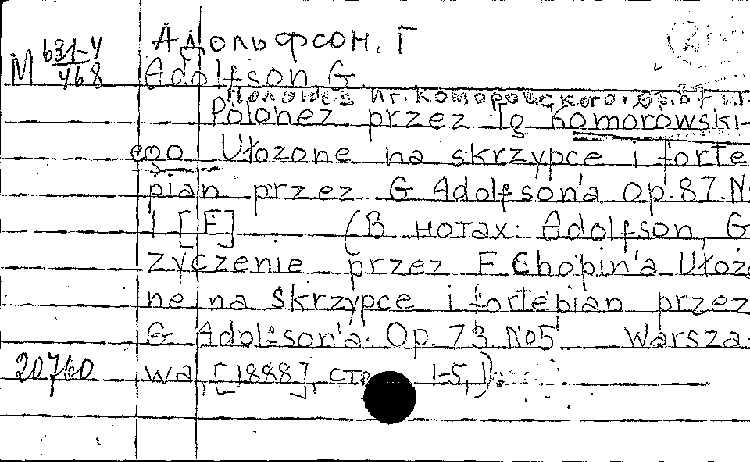 Адольфсон, Г
М 631-4/468
Adolfson G
Полонез Иг. Коморовского. Op. 87
Polonez przez Ig Komorowski-
ego Ułozone na skrzypce i forte
pian przez G Adolfson'a Op. 87. N:
1 [F] (В нотах: Adolfson, G
Zyczenie przez F Chopin'a Ułozo
ne na Skrzypce i fortepian przez
G Adolfson'a. Op. 73 No5 Warsza-
20760 wa, [1888], стр. 1-5,)